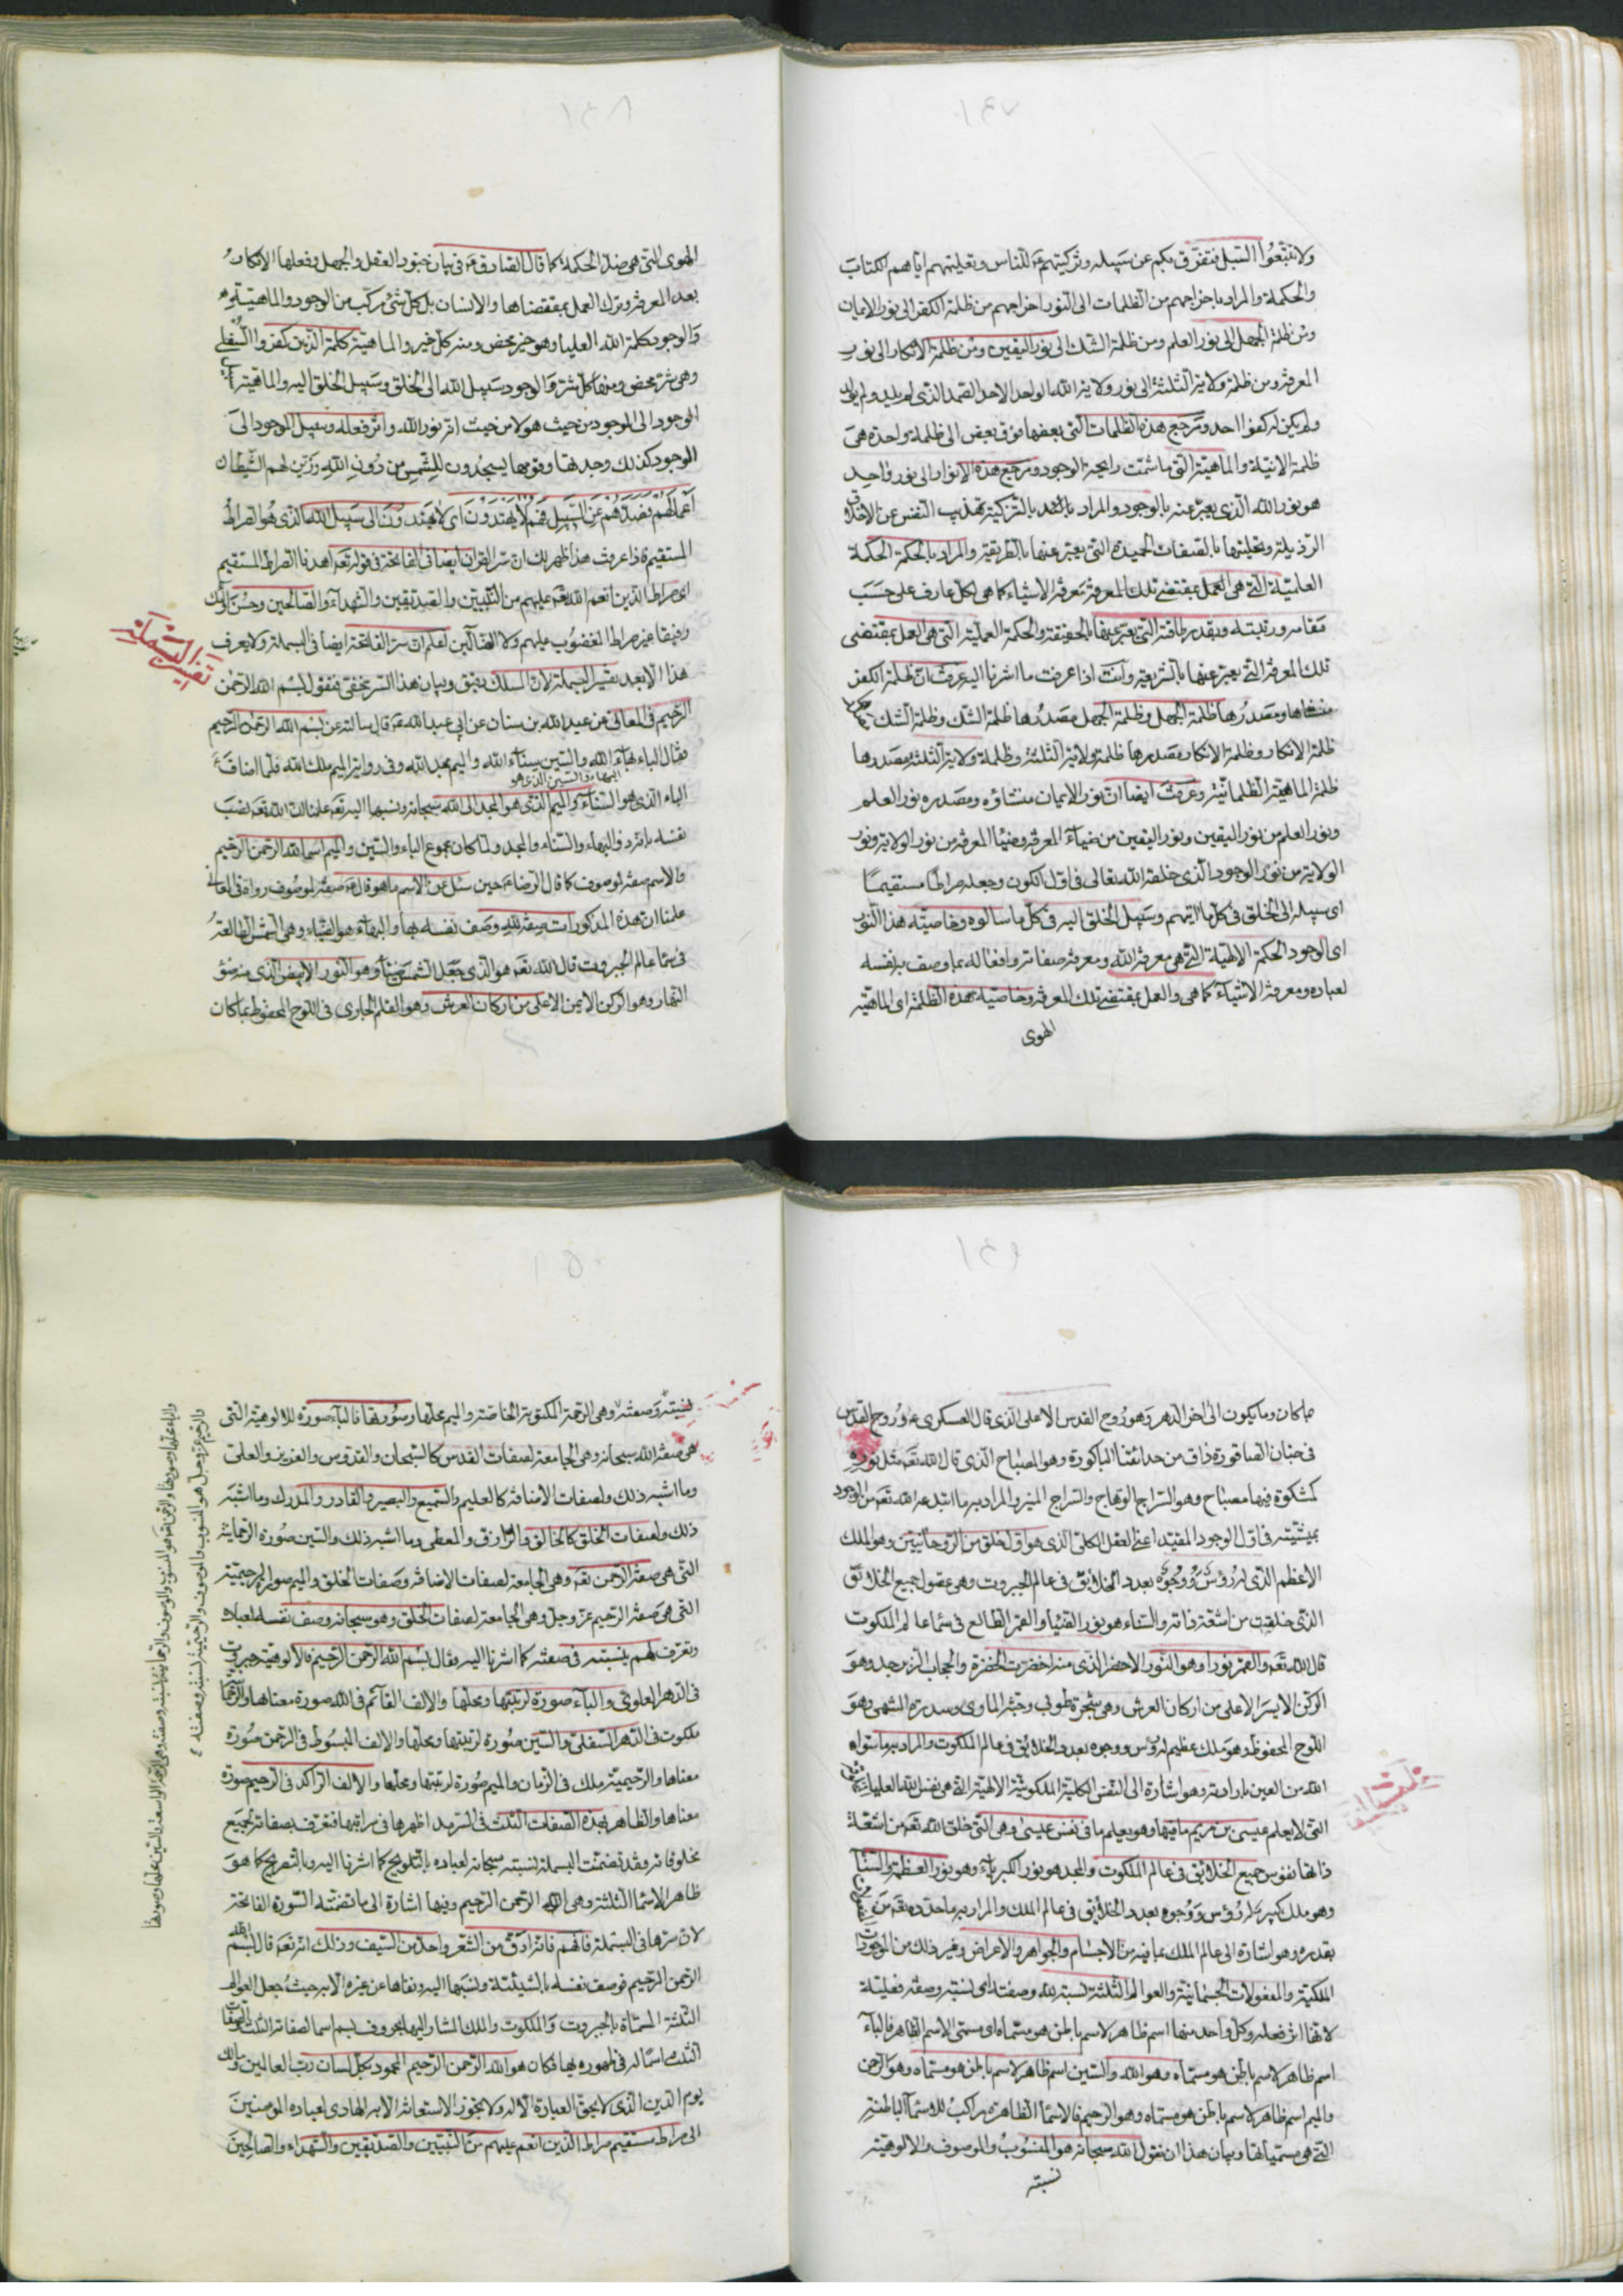 ١٤٧
ولا تتبعوا السبل فتفرق بكم عن سبيله وتزكيتهم للناس وتعليمهم اياهم الكتاب
والحكمة والمراد باخراجهم من الظلمات الى النور اخراجهم من ظلمة الكفر الى نور الايمان
ومن ظلمة الجهل الى نور العلم ومن ظلمة الشك الى نور اليقين ومن ظلمة الانكار الى نور
المعرفة ومن ظلمة ولاية الثلثة الى نور ولاية الله الواحد الاحد الصمد الذى لم يلد ولم يولد
ولم يكن له كفوا احد وترجع هذه الظلمات التى بعضها فوق بعض الى ظلمة واحدة هى
ظلمة الانية والماهية التى ما شمت رايحة الوجود وترجع هذه الانوار الى نور واحد
هو نور الله الذى يعبر عنه بالوجود والمراد بالتزكية تهذيب النفس عن الاخلاق
الرذيلة وتحليتها بالصفات الحميدة التى يعبر عنها بالطريقة والمراد بالحكمة الحكمة
العلمية التى هى العمل بمقتضى تلك المعرفة معرفة الاشياء كما هى لكل عارف على حسب
مقامه ورتبته وبقدر طاقته التى يعبر عنها بالحقيقة والحكمة العملية التى هى العمل بمقتضى
تلك المعرفة التى يعبر عنها بالشريعة وانت اذا عرفت ما اشرنا اليه عرفت ان ظلمة الكفر
منشاها ومصدرها ظلمة الجهل وظلمة الجهل مصدرها ظلمة الشك وظلمة الشك
ظلمة الانكار وظلمة الانكار مصدرها ظلمة ولاية الثلثة وظلمة ولاية الثلثة مصدرها
ظلمة الماهية الظلمانية وعرفت ايضا ان نور الايمان منشاؤه ومصدره نور العلم
ونور العلم من نور اليقين ونور اليقين من ضياء المعرفة وضياء المعرفة من نور الولاية ونور
الولاية من نور الوجود الذى خلقه الله تعالى فى اول الكون وجعله صراطا مستقيما
اى سبيله الى الخلق فى كل ما اليهم وسبيل الخلق اليه فى كل ما سالوه وخاصية هذا النور
اى الوجود الحكمة الالهية التى هى معرفة الله ومعرفة صفاته وافعاله بما وصف به نفسه
لعباده ومعرفة الاشياء كما هى والعمل بمقتضى تلك المعرفة وخاصية هذه الظلمة اى الماهية
الهوى
١٤٨
الهوى التى هى ضد الحكمة كما قال الصادق ع فى بيان جنود العقل والجهل وفعلها الانكار
بعد المعرفة وترك العمل بمقتضاها والانسان بل كل شئ مركب من الوجود والماهية
والوجود كلمة الله العليا وهو خير محض ومنه كل خير والماهية كلمة الذين كفروا السفلى
وهى شر محض ومنها كل شر والوجود سبيل الله الى الخلق وسبيل الخلق اليه والماهية
الوجود الى الموجود من حيث هو لا من حيث انه نور الله واثر فعله وسبيل الموجود الى
الموجود كذلك وجدتها وقومها يسجدون للشمس من دون الله وزين لهم الشيطان
اعمالهم فصدهم عن السبيل فهم لا يهتدون اى لا يهتدون الى سبيل الله الذى هو الصراط
المستقيم فاذا عرفت هذا ظهر لك ان سر القران ايضا فى الفاتحة فى قوله تعه اهدنا الصراط المستقيم
اى صراط الذين انعم الله تعه عليهم من النبيين والصديقين والشهداء والصالحين وحسن اولئك
رفيقا غير صراط المغضوب عليهم ولا الضالين فعلم ان سر الفاتحة ايضا فى البسملة ولا يعرف
هذا الا بعد تفسير البسملة لان المسلك دقيق وبيان هذا السر خفى فنقول بسم الله الرحمن
الرحيم فى المعانى عن عبد الله بن سنان عن ابى عبد الله ع قال سالته عن بسم الله الرحمن الرحيم
فقال الباء بهاء الله والسين سناء الله والميم مجد الله وفى رواية الميم ملك الله فلما اضاف ع
البهاء والسين الذى هو
الباء الذى هو السناء والميم الذى هو المجد الى الله سبحانه ونسبها اليه تعه علمنا ان الله تعه نصب
نفسه بانه ذو البهاء والسناء والمجد ولما كان مجموع الباء والسين والميم اسما لله الرحمن الرحيم
والاسم صفة لموصوف كما قال الرضا ع حين سئل عن الاسم ما هو قال ع صفة لموصوف رواه فى المعانى
علمنا ان هذه المذكورات صفة لله وصف نفسه بها والبهاء هو الضياء وهى الشمس الطالعة
فى سماء عالم الجبروت قال الله تعه هو الذى جعل الشمس ضياء وهو النور الابيض الذى منه ضوء
النهار وهو الركن الايمن الاعلى من اركان العرش وهو القلم الجارى فى اللوح المحفوظ بما كان
تفسير البسملة
١٤٩
ما كان وما يكون الى اخر الدهر وهو روح القدس الاعلى الذى قال العسكرى ع وروح القدس
فى جنان الصاقورة ذاق من حدائقنا الباكورة وهو المصباح الذى قال الله تعه مثل نوره
كمشكوة فيها مصباح وهو السراج الوهاج والسراج المنير والمراد به ما ابتدعه الله تعه من الوجود
بمشيته فى اول الوجود المقيد اعنى العقل الكلى الذى هو اول خلق من الروحانيين وهو الملك
الاعظم الذى له رؤس ووجوه بعدد الخلائق فى عالم الجبروت وهى عقول جميع الخلائق
التى خلقت من اشعة ذاته والسناء هو نور الضياء والقمر الطالع فى سماء عالم الملكوت
قال الله تعه والقمر نورا وهو النور الاخضر الذى منه اخضرت الخضرة والحجاب الزبرجد وهو
الركن الايسر الاعلى من اركان العرش وهى شجرة طوبى وجنة الماوى وسدرة المنتهى وهو
اللوح المحفوظ وهو ملك عظيم له رؤس ووجوه بعدد الخلائق فى عالم الملكوت والمراد به ما سواه
الله من العين بارادته وهو اشارة الى النفس الكلية الملكوتية الالهية التى هى نفس الله العليا
التى لا يعلم عيسى بن مريم ما فيها وهو يعلم ما فى نفس عيسى وهى التى خلق الله تعه من اشعة
ذاتها نفوس جميع الخلائق فى عالم الملكوت والمجد هو نور الكبرياء وهو نور العظمة والسناء
وهو ملك كبير له رؤس ووجوه بعدد الخلائق فى عالم الملك والمراد به ما حدده تعه من
بقدره وهو اشارة الى عالم الملك بما فيه من الاجسام والجواهر والاعراض وغير ذلك من الموجودات
الملكية والمفعولات الجسمانية والعوالم الثلثة نسبة لله وصفته اى نسبته وصفة فعلية
لانها اثر فعله وكل واحد منها اسم ظاهر لاسم باطن هو مسماه اى مسمى الاسم الظاهر فالباء
اسم ظاهر لاسم باطن هو مسماه وهو الله والسين اسم ظاهر لاسم باطن هو مسماه وهو الرحمن
والميم اسم ظاهر لاسم باطن هو مسماه وهو الرحيم فالاسماء الظاهرة مراكب للاسماء الباطنة
التى هى مسمياتها وبيان هذا ان نقول الله سبحانه هو المنسوب والموصوف والالوهية
نسبته
١٥٠
نسبته وصفته وهى الرحمة المكتوبة الخاصة والميم محلها وصورتها فالباء صورة للالوهية التى
هى صفة الله سبحانه وهى الجامعة لصفات القدس كالسبحان والقدوس والعزيز والعلى
وما اشبه ذلك ولصفات الاضافة كالعليم والسميع والبصير والقادر والمدرك وما اشبه
ذلك ولصفات الخلق كالخالق والرازق والمعطى وما اشبه ذلك والسين صورة الرحمانية
التى هى صفة الرحمن تعه وهى الجامعة لصفات الاضافة وصفات الخلق والميم صورة الرحيمية
التى هى صفة الرحيم عز وجل وهى الجامعة لصفات الخلق وهو سبحانه وصف نفسه لعباده
وتعرف لهم بنسبته فى صفته كما اشرنا اليه فقال بسم الله الرحمن الرحيم فالالوهية جبروت
فى الدهر العلوى والباء صورة لرتبتها ومحلها والالف القائم فى الله صورة معناها والرحمانية
ملكوت فى الدهر السفلى والسين صورة لرتبتها ومحلها والالف المبسوط فى الرحمن صورة
معناها والرحيمية ملك فى الزمان والميم صورة لرتبتها ومحلها والالف الراكد فى الرحيم صورة
معناها والظاهر بهذه الصفات الثلث فى السرمد اظهرها فى مراتبها فتعرف بصفاته لجميع
مخلوقاته فقد تضمنت البسملة نسبته سبحانه لعباده بالتلويح كما اشرنا اليه وبالتصريح كما هو
ظاهر الاسماء الثلثة وهى الله الرحمن الرحيم وفيها اشارة الى ما تضمنته السورة الفاتحة
لان سرها فى البسملة فافهم فانه ادق من الشعر واحد من السيف وذلك انه تعه قال بسم الله
الرحمن الرحيم فوصف نفسه بالشيئية ونسبها اليه ونفاها عن غيره الا به حيث جعل العوالم
الثلثة المسماة بالجبروت والملكوت والملك المشار اليها بحروف بسم اسما لصفاته الثلث
الثلث اسماء له فى ظهوره بها فكان هو الله الرحمن الرحيم المحمود بكل لسان رب العالمين ومالك
يوم الدين الذى لا يحق العبادة الا له ولا يجوز الاستعانة الا به الهادى لعباده المؤمنين
الى صراط مستقيم صراط الذين انعم عليهم من النبيين والصديقين والشهداء والصالحين